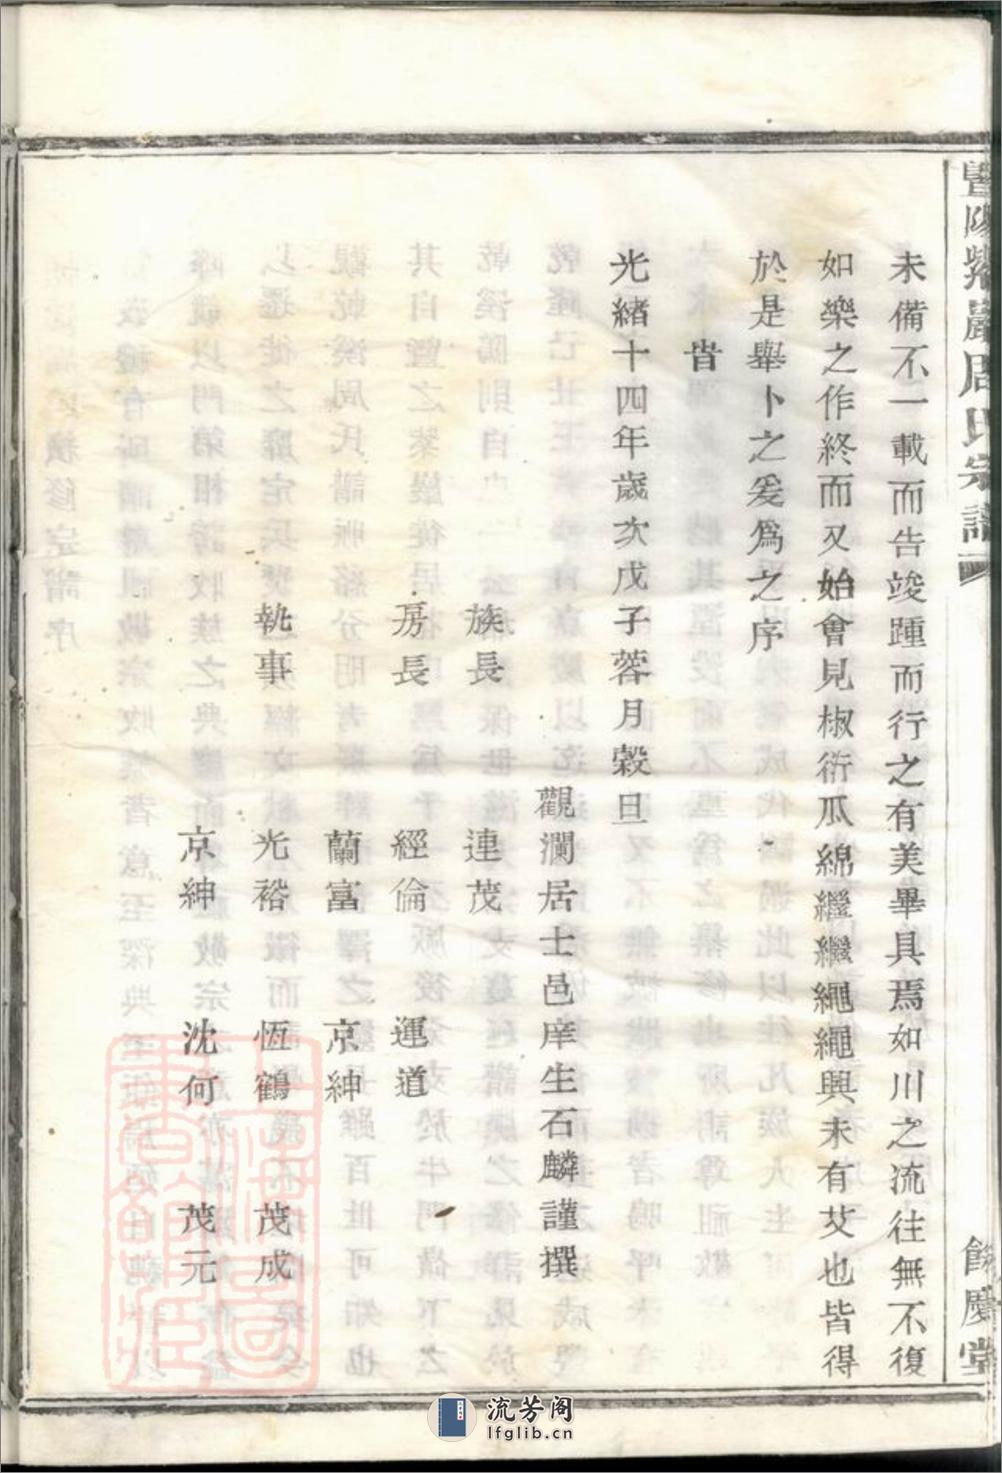 暨陽紫巖周氏宗譜
餘慶堂
未備不一載而告竣踵而行之有美畢具焉如川之流往無不復
如樂之作終而又始會見椒衍瓜綿繼繼繩繩興未有艾也皆得
於是舉卜之爰爲之序
旹
光緒十四年歲次戊子蓉月穀旦
觀瀾居士邑庠生石麟謹撰
族長 連茂
房長 經倫 運道
蘭富 京紳
執事 光裕 恆鶴 茂成
京紳 沈何 茂元
流芳阁
lfglib.cn